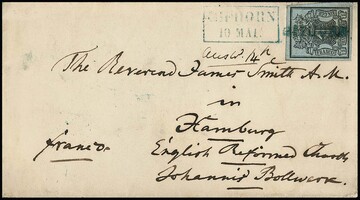 GIFHORN
19 MAI.
The Reverend James Smith A.M.
in
Hamburg
franco
English Reformed Church
Johannis Bollwerk.